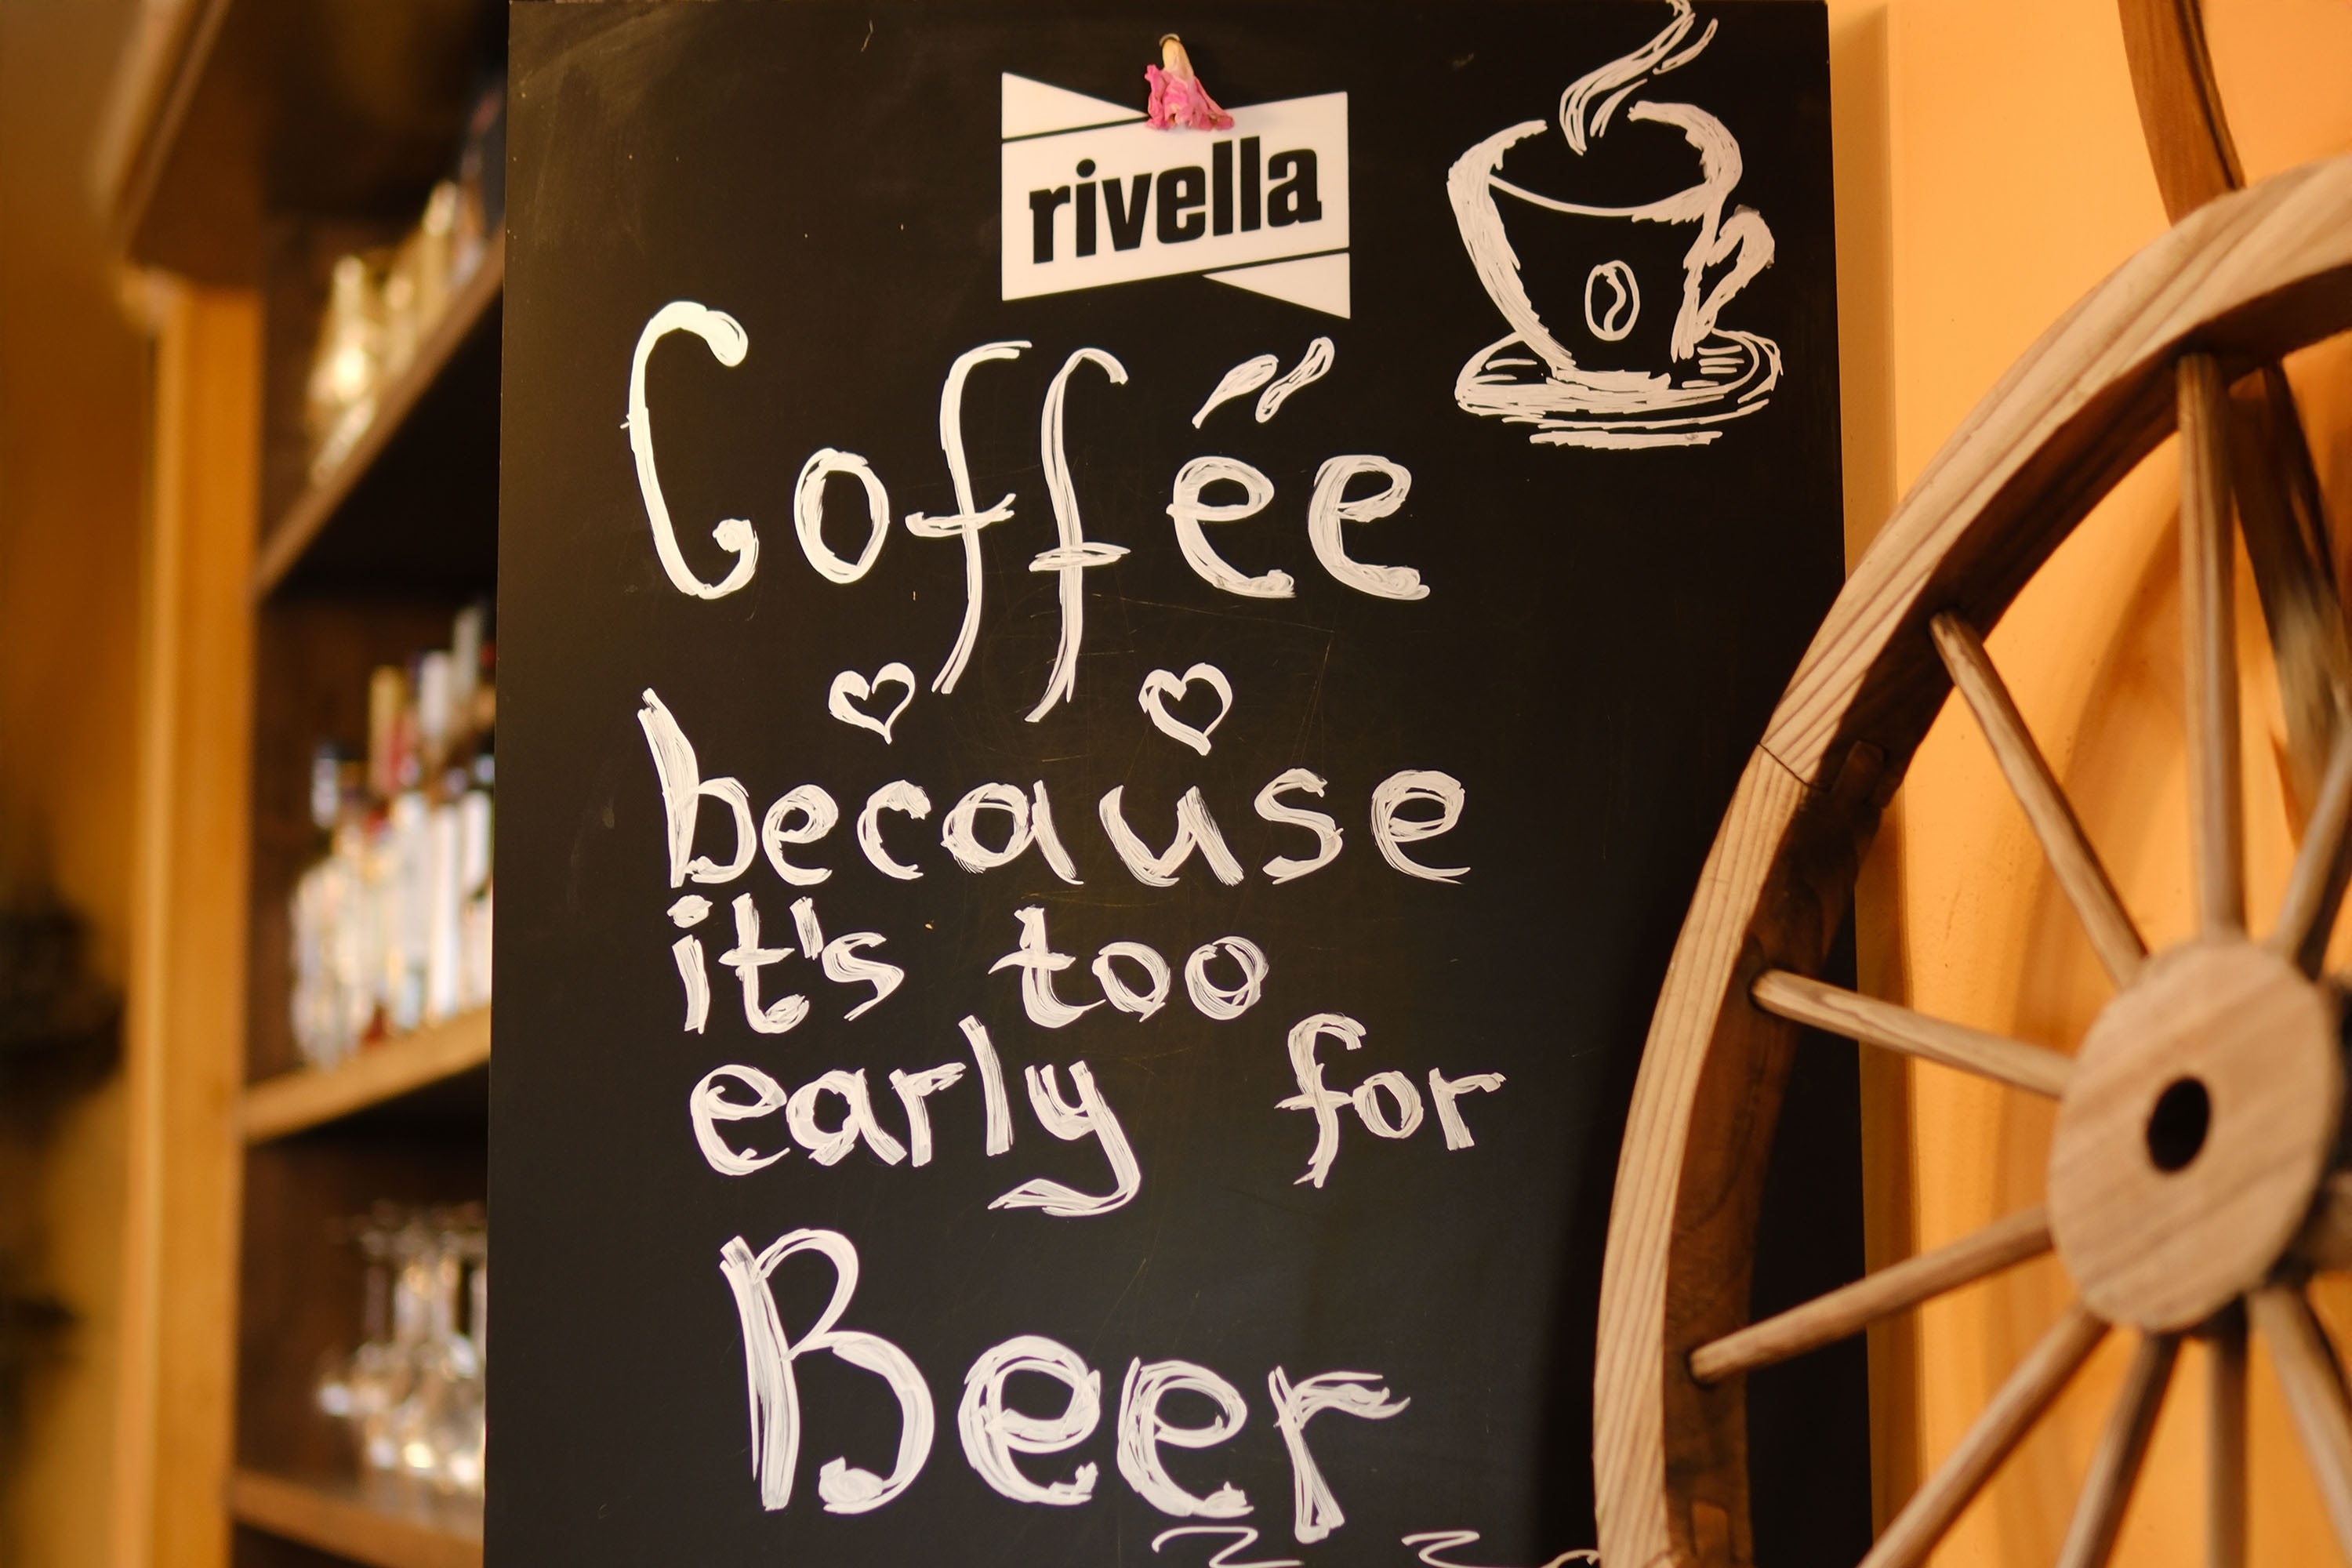 rivella
Coffee
because
it's too
early for
Beer